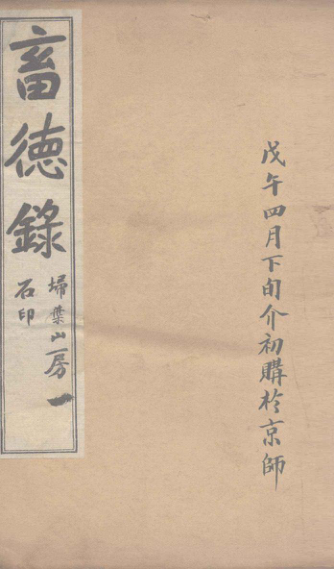 戊午四月下旬介初購於京師
畜德錄
掃葉山房
石印
一